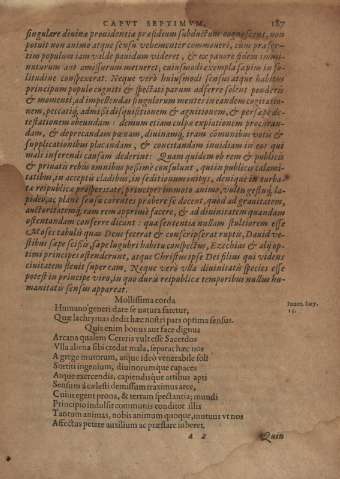 CAPVT SEPTIMVM. 187
singulare diuinæ prouidentiæ præsidium subductum cognosceret, non
potuit non animo atque sensu vehementer commoueri, cum præser-
tim populum tam valdè pauidum videret, & ex pauore finem immi-
nuturum aut amissurum metueret, cuiusmodi exempla sæpius in so-
litudine conspexerat. Neque verò huiusmodi sensus atque habitus
principum populo cogniti & spectati parum adferre solent ponderis
& momenti, ad impellendas singulorum mentes in eandem cogitatio-
nem, peccatíq; admissi disquisitionem & agnitionem, & persæpè de-
testationem obeundam: demum etiam cum ad expiationem procuran-
dam, & deprecandam pœnam, diuinamq́; iram cōmunibus votis &
supplicationibus placandam, & concitandam inuidiam in eos qui
mali inferendi causam dederint: Quam quidem ob rem & publicis
& priuatis rebus omnibus pessimè consulunt, qui in publicis calami-
tatibus, in acceptis cladibus, in seditione omnibus, denique in
ta reipublicæ prosperitate, principes immoto animo, vultu gestuq́; la-
pideo, ac planè sensu carentes probere se decent, quòd ad grauitatem,
auctoritatemq́; eam rem apprimè facere, & ad diuinitatem quandam
ostentandam conferre dicant: qua sententia nullam stultiorem esse
Moses tabulis quas Deus fecerat & conscripserat ruptis, Dauid ve-
stibus sæpe scissis, sæpe lugubri habitu conspectus, Ezechias & alij op-
timi principes ostenderunt, atque Christus ipse Dei filius qui videns
ciuitatem fleuit super eam, Neque verò vlla diuinitatis species esse
potest in principe viro, in quo duris reipublicæ temporibus nullus hu-
manitatis sensus appareat.
Mollissima corda
Humano generi dare se natura fatetur,
Quæ lachrymas dedit: hæc nostri pars optima sensus.
Quis enim bonus aut face dignus
Arcana qualem Cereris vult esse Sacerdos
Vlla aliena sibi credat mala, separat hæc nos
A grege mutorum, atque ideò venerabile soli
Sortiti ingenium, diuinorumque capaces
Atque exercendis, capiendisque artibus apti
Sensum à cælesti demissum traximus arce,
Cuius egent prona, & terram spectantia; mundi
Principio indulsit communis conditor illis
Tantum animas, nobis animum quoque, mutuus vt nos
Affectus petere auxilium ac præstare iuberet,
Iuuen. Saty.
15.
A 2 Quin